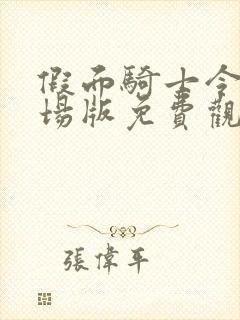 假而騎士今
場版免費觀
張偉平